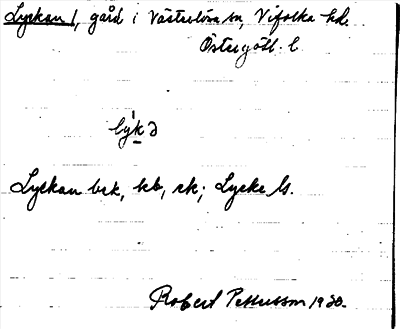 Lyckan 1, gård i Västerlösa sn, Vifolka hd.
Östergötl. l.
lykə
Lyckan bek, kb, sk; Lycke ls.
Robert Pettersson 1930.